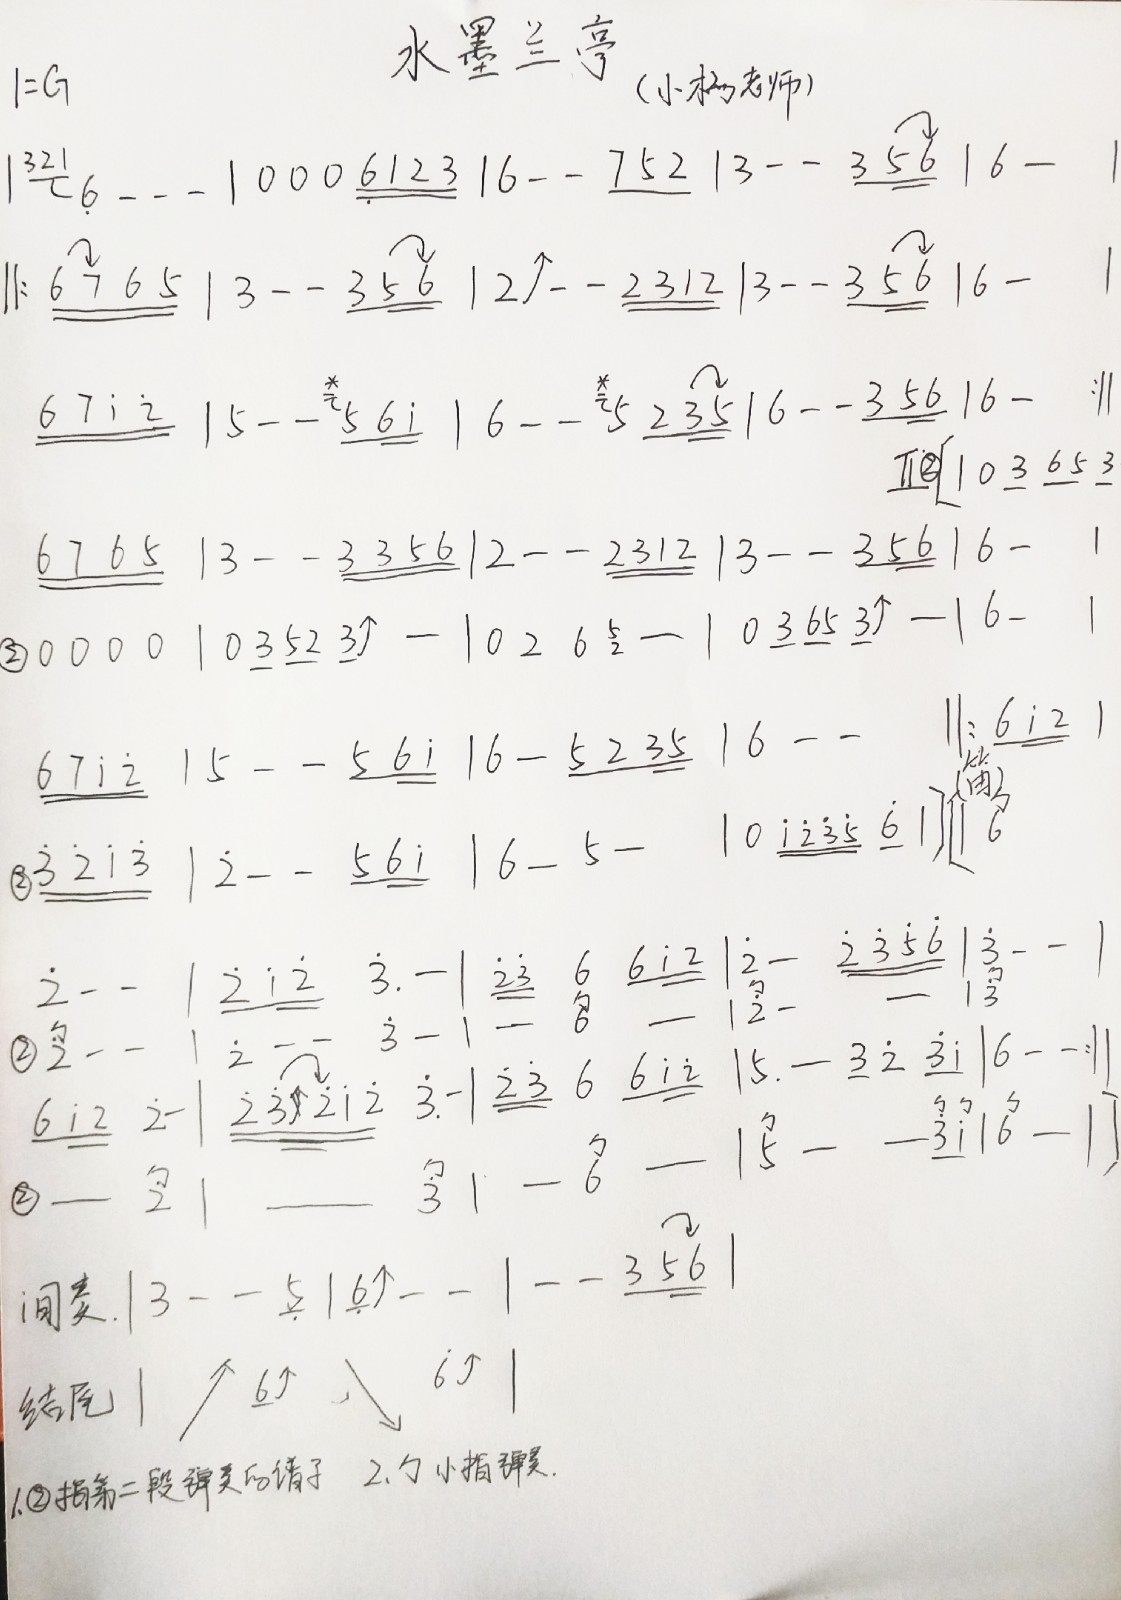 水墨兰亭
1=G
(小杨老师)
| 321 6 - - - | 0 0 0 6123 | 6 - - 752 | 3 - - 356 | 6 - |
||: 6765 | 3 - - 356 | 2↑ - - 2312 | 3 - - 356 | 6 - |
671̇2̇ | 5 - - * 561̇ | 6 - - * 5 235 | 6 - - 356 | 6 - :||
II② [ | 0 3 65 3
6765 | 3 - - 3356 | 2 - - 2312 | 3 - - 356 | 6 - |
② 0 0 0 0 | 0 3 52 3↑ - | 0 2 6 5 - | 0 3 65 3↑ - | 6 - |
671̇2̇ | 5 - - 561̇ | 6 - 5 235 | 6 - - ||: 61̇2 |
② 3̇2̇1̇3̇ | 2̇ - - 561̇ | 6 - 5 - | 0 1̇2̇3̇5̇ 6̇ | ] [ || 6
2̇ - - | 2̇1̇2̇ 3̇. - | 2̇3̇ 6 61̇2 | 2̇ - 2̇3̇5̇6̇ | 3̇ - - |
② 2̇ - - | 2̇ - - 3̇ - | - 6 - | 2̇ - - | 3̇
61̇2 2̇ - | 2̇3̇↑2̇1̇2̇ 3̇. - | 2̇3̇ 6 61̇2̇ | 5. - 32̇ 3̇1̇ | 6 - - :||
② - 2̇ | - 3̇ | - 6 - | 5 - - 3̇1̇ | 6 - | ]
间奏. | 3 - - 5 | 6↑ - - | - - 356 |
结尾 | ↗ 6↑ ↘ 6̇↑ |
1.②指第二段弹奏的谱子 2.勹小指弹奏.